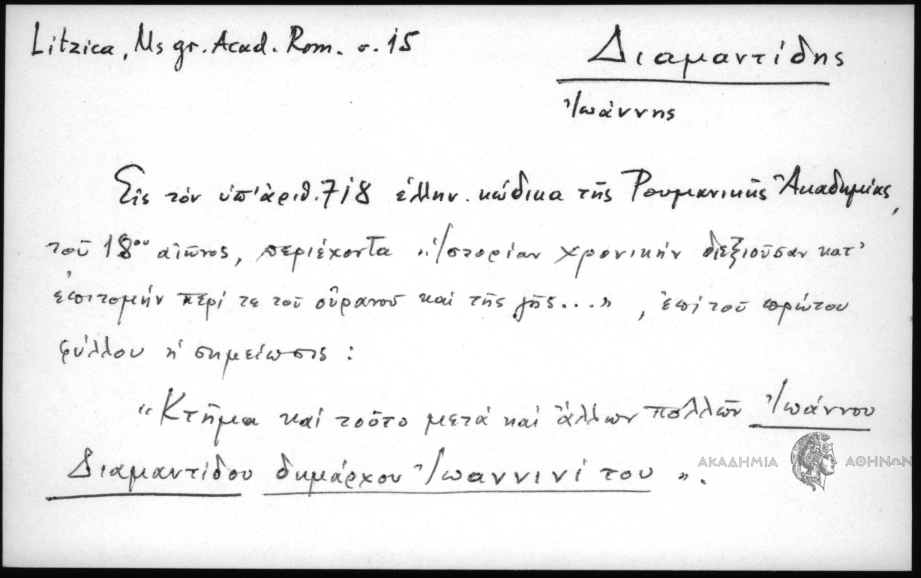 Litzica, Ms gr. Acad. Rom. σ. 15
Διαμαντίδης
Ἰωάννης
Εἰς τὸν ὑπ' ἀριθ. 718 ἑλλην. κώδικα τῆς Ρουμανικῆς Ἀκαδημίας,
τοῦ 18ου αἰῶνος, περιέχοντα «Ἱστορίαν χρονικὴν διεξιοῦσαν κατ'
ἐπιτομὴν περί τε τοῦ οὐρανοῦ καὶ τῆς γῆς...», ἐπὶ τοῦ πρώτου
φύλλου ἡ σημείωσις:
«Κτῆμα καὶ τοῦτο μετὰ καὶ ἄλλων πολλῶν Ἰωάννου
Διαμαντίδου δημάρχου Ἰωαννινίτου».
ΑΚΑΔΗΜΙΑ ΑΘΗΝΩΝ